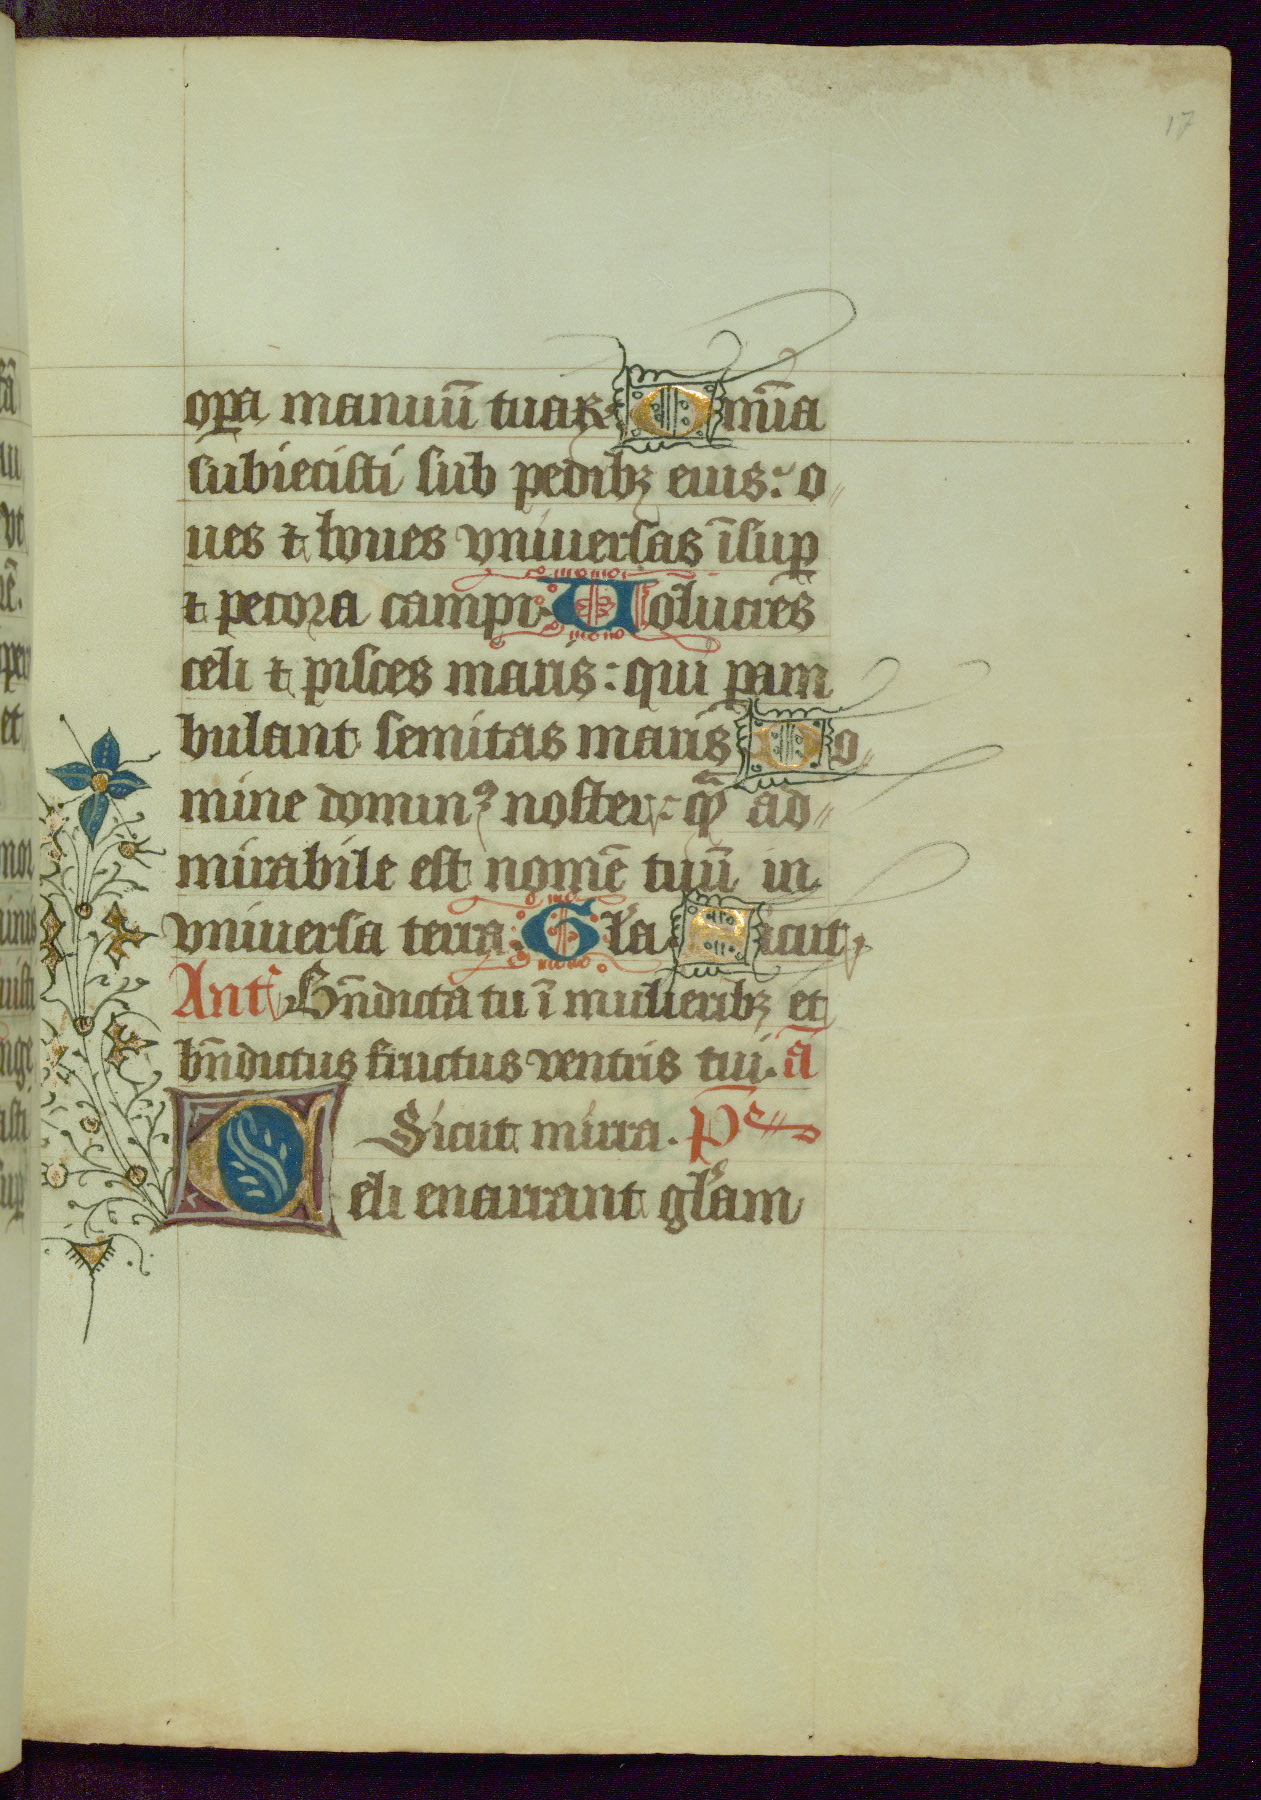 17
op̲a manuū tuaꝝ Om̄ia
subiecisti sub pedibꝫ eius: o
ues ⁊ boues vniuersas īsup̲
⁊ pecora campi. Uolucres
celi ⁊ pisces maris: qui p̲am
bulant semitas maris Do
mine dominꝰ noster: qᷓ ad
mirabile est nomē tuū in
vniuersa terra. Gl̄a Sicut
Ant̄ Bn̄dicta tu ī mulieribꝫ et
bn̄dictus fructus ventris tui. ā
Sicut mirra. p̄s
Celi enarrant gl̄am